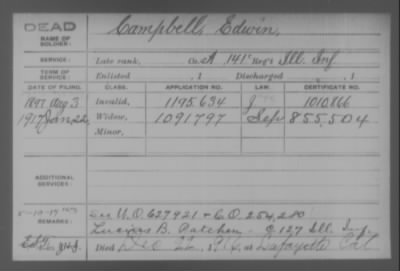 DEAD
NAME OF SOLDIER:
Campbell, Edwin,
SERVICE:
Late rank, Co. A 141" Reg't Ill. Inf
TERM OF SERVICE:
Enlisted , 1 Discharged , 1
DATE OF FILING. CLASS. APPLICATION NO. LAW. CERTIFICATE NO.
1897 Aug 3 Invalid, 1195.634 J 1010.866
1917 Jan Widow, 1091797 Sep 855.504
Minor,
ADDITIONAL SERVICES:
REMARKS:
See W.O. 627921 + C.O. 254,280
B. Patchen. C 127 Ill. Inf.
Died Dec 22, 1916, at Lafayette Col